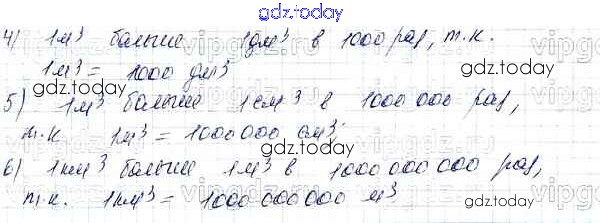 gdz.today
4) 1м³ больше 1дм³ в 1000 раз, т.к.
1м³ = 1000 дм³
gdz.today
gdz.today
5) 1м³ больше 1см³ в 1000 000 раз,
т.к 1м³ = 1000000 см³
gdz.today
6) 1км³ больше 1м³ в 1000 000 000 раз,
т.к. 1км³ = 1000 000 000 м³
gdz.today
gdz.today